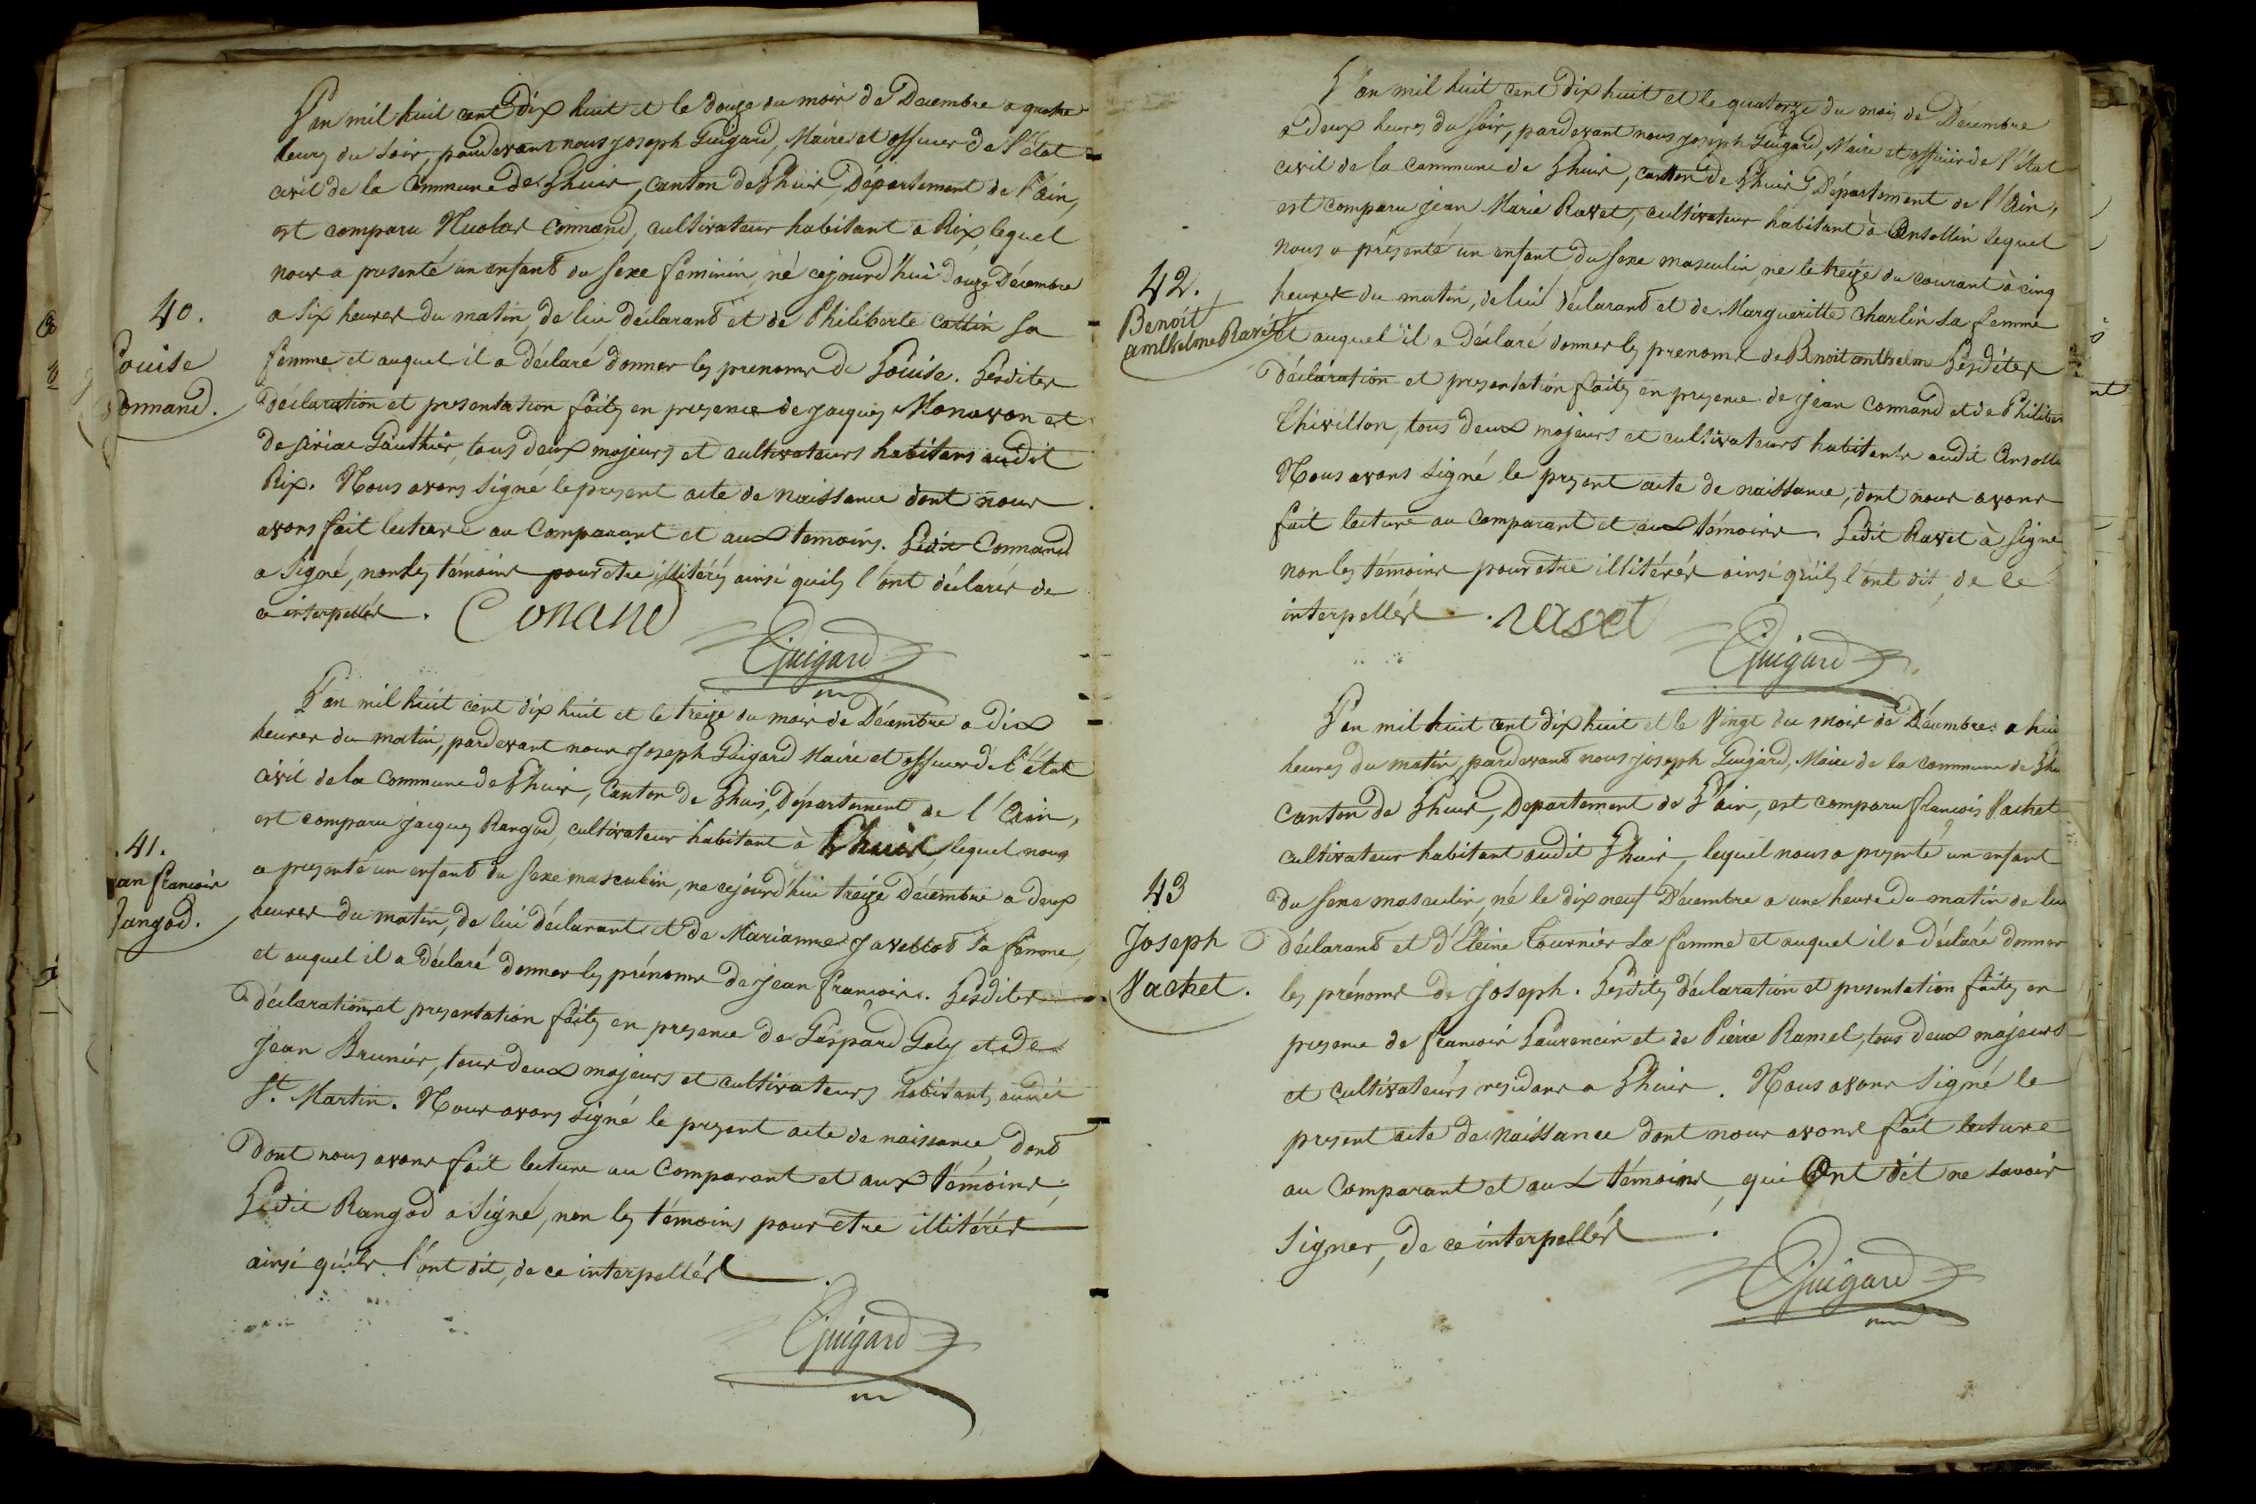 L'an mil huit cent Dix huit et le douze du mois de Decembre a quatre
heures du soir, pardevant nous joseph Guigard, Maire et officier de l'état
civil de la Commune de Lhuis, canton de Lhuis, Département de l'ain,
est comparu Nicolas Connand, cultivateur habitant a Rix lequel
nous a presenté un enfant du sexe feminin, né cejourd'hui douze Décembre
a six heures du matin, de lui déclarant et de Philiberte Cattin sa
femme et auquel il a déclaré donner les prenoms de Louise. Lesdites
déclaration et presentation faites en presence de jacques Monavon et
de siriac Gauthier, tous deux majeurs et cultivateurs habitans audit
Rix. Nous avons signé le present acte de naissance dont nous
avons fait lecture au Comparant et aux temoins. Ledit Connand
a signé, non les témoins pour etre illitérés ainsi quils l'ont déclarés de
ce interpellés. Conand
Guigard
40.
Louise
Connand.
L'an mil huit cent dix huit et le treize du mois de Décembre a dix
heures du matin, pardevant nous Joseph Guigard Maire et officier de l'état
civil de la commune de Lhuis, Canton de Lhuis, Département de l'Ain,
est comparu jacques Rangod, cultivateur habitant à Lhuis, lequel nous
a presenté un enfant du sexe masculin, ne cejourd'hui treize Décembre a deux
heures du matin, de lui déclarant et de Marianne Javellot sa femme,
et auquel il a déclaré donner les prénoms de jean francois. Lesdites
Déclaration et presentation faites en presence de Gaspard Goly et de
Jean Brunier, tous deux majeurs et cultivateurs habitants audit
St. Martin. Nous avons signé le present acte de naissance, dont
Dont nous avons fait lecture au Comparant et aux témoins;
Ledit Rangod a signé, non les témoins pour etre illitérés
ainsi quils l'ont dit, de ce interpellés.
Guigard
41.
an francois
Rangod.
L'an mil huit cent dix huit et le quatorze du mois de Décembre
à deux heures du soir, pardevant nous joseph Guigard, Maire et officier de l'état
civil de la commune de Lhuis, canton de Lhuis, Département de l'Ain,
est comparu jean Marie Ravet, cultivateur habitant à Ansollin lequel
nous a présenté un enfant du sexe masculin, ne le treize du courant à cinq
heures du matin, de lui déclarant et de Margueritte Charlin sa femme
et auquel il a Déclaré donner les prenoms de Benoit anthelme Lesdites
Déclaration et presentation faites en presence de jean Connand et de Philiber
Chivillon, tous deux majeurs et cultivateurs habitants audit Ansolli
Nous avons signé le present acte de naissance, dont nous avons
fait lecture au Comparant et aux témoins. Ledit Ravet à signé
non les témoins pour etre illitérés ainsi quils l'ont dit, de ce
interpellés. ravet
Guigard
42.
Benoit
amthelme Ravet
L'an mil huit cent dix huit et le Vingt du mois de Décembre a hui
heures du matin, pardevant nous joseph Guigard, Maire de la commune de Lhu
Canton de Lhuis, Departement de L'ain, est comparu francois Vachet
cultivateur habitant audit Lhuis, lequel nous a presenté un enfant
du sexe masculin, né le dix neuf Décembre a une heure du matin de lui
déclarant et d'Eleine Tournier sa femme et auquel il a déclaré donner
les prénoms de Joseph. Lesdites déclaration et presentation faites en
presence de francois Laurencin et de Pierre Ramel, tous deux majeurs
et cultivateurs residans a Lhuis. Nous avons signé le
present acte de naissance dont nous avons fait lecture
au Comparant et aux témoins, qui Ont dit ne savoir
signer, de ce interpellés.
Guigard
43
Joseph
Vachet.